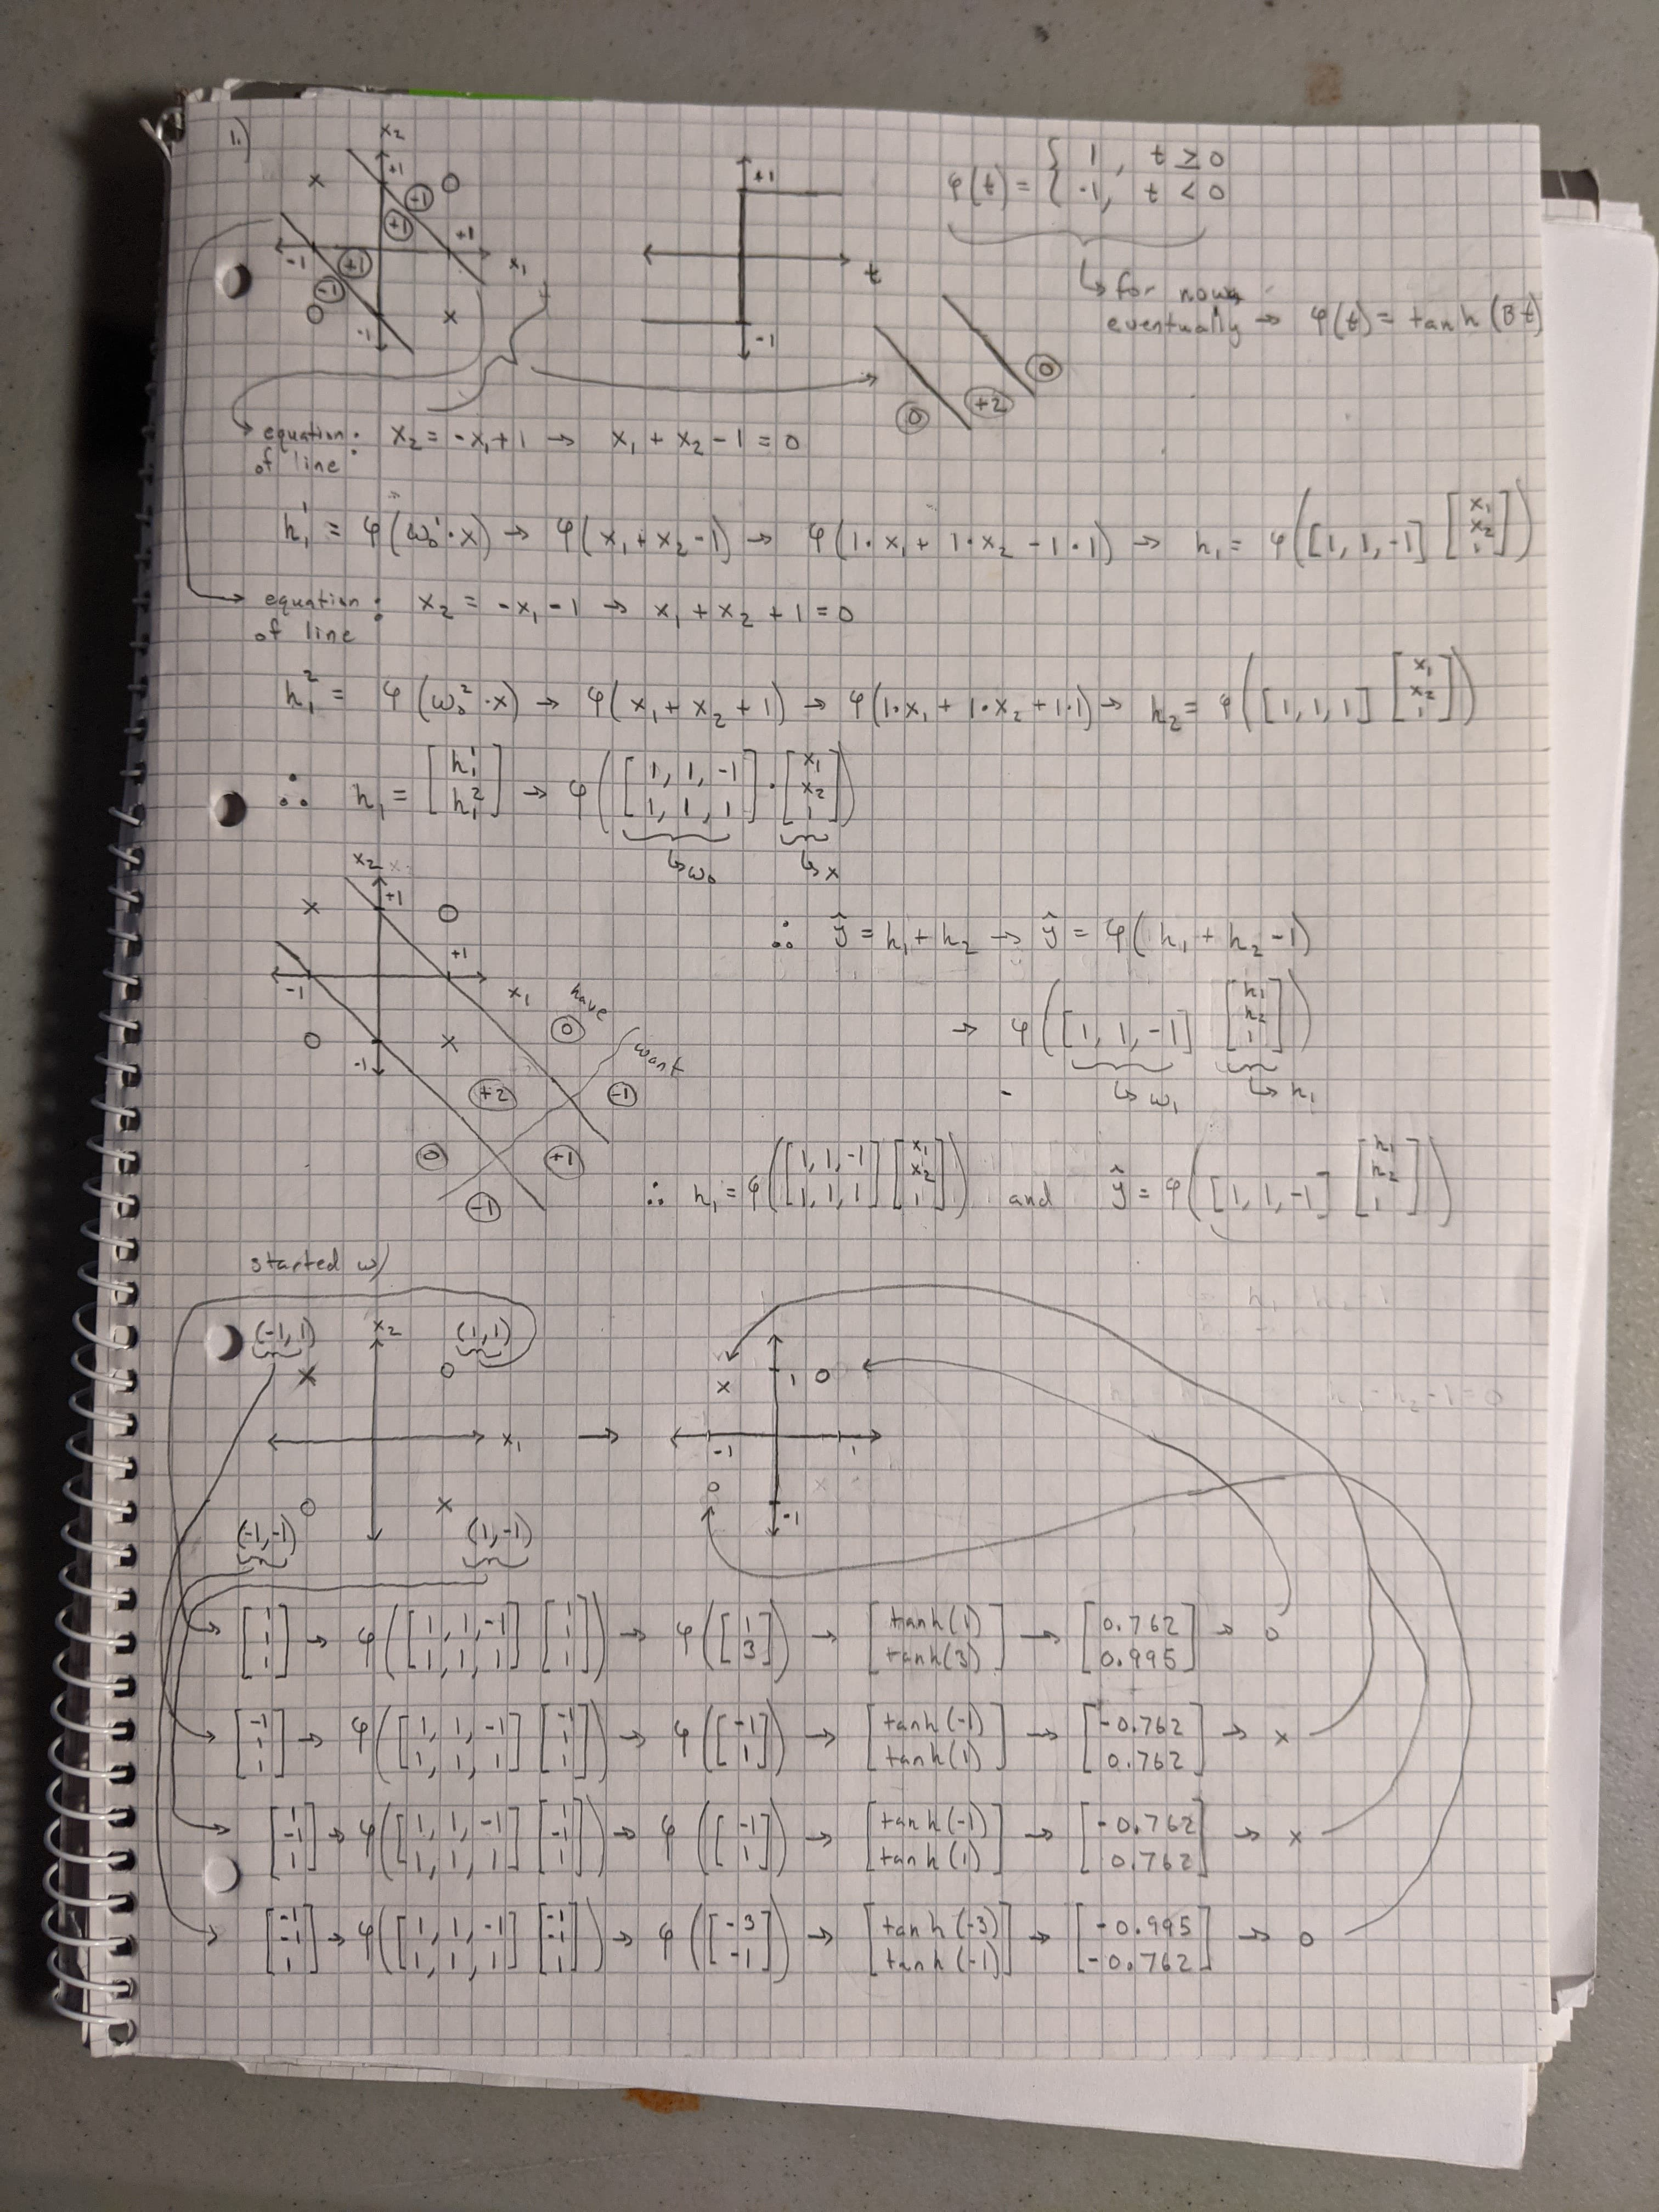 1.)
x₂
+1
x o
(-1)
(+1)
-1 (+1) +1 x₁
(-1)
o x
-1
+1
t
-1
φ(t) = { 1, t ≥ 0
-1, t < 0
↳ for now,
eventually → φ(t) = tanh(βt)
(0) (+2) (0)
equation of line: x₂ = -x₁ + 1 → x₁ + x₂ - 1 = 0
h₁¹ = φ(ω₀¹·x) → φ(x₁ + x₂ - 1) → φ(1·x₁ + 1·x₂ - 1·1) → h₁ = φ([1, 1, -1] [x₁ x₂ 1])
equation of line: x₂ = -x₁ - 1 → x₁ + x₂ + 1 = 0
h₁² = φ(ω₀²·x) → φ(x₁ + x₂ + 1) → φ(1·x₁ + 1·x₂ + 1·1) → h₂ = φ([1, 1, 1] [x₁ x₂ 1])
∴ h₁ = [h₁¹ h₁²] → φ([1, 1, -1 1, 1, 1]·[x₁ x₂ 1])
↳ω₀ ↳x
x₂
x +1 o
-1 +1 x₁
o -1 x
have
(0)
want
(+2) (-1)
(0) (+1)
(-1)
∴ ŷ = h₁ + h₂ → ŷ = φ(h₁ + h₂ - 1)
→ φ([1, 1, -1] [h₁ h₂ 1])
↳ω₁ ↳h₁
∴ h₁ = φ([1, 1, -1 1, 1, 1] [x₁ x₂ 1]) and ŷ = φ([1, 1, -1] [h₁ h₂ 1])
started w/
(-1, 1) x₂ (1, 1)
x o
x₁ →
o x
(-1, -1) (1, -1)
x 1 o
-1 1
o -1
[1 1 1] → φ([1, 1, -1 1, 1, 1] [1 1 1]) → φ([1 3]) → [tanh(1) tanh(3)] → [0.762 0.995] → o
[-1 1 1] → φ([1, 1, -1 1, 1, 1] [-1 1 1]) → φ([-1 1]) → [tanh(-1) tanh(1)] → [-0.762 0.762] → x
[1 -1 1] → φ([1, 1, -1 1, 1, 1] [1 -1 1]) → φ([-1 1]) → [tanh(-1) tanh(1)] → [-0.762 0.762] → x
[-1 -1 1] → φ([1, 1, -1 1, 1, 1] [-1 -1 1]) → φ([-3 -1]) → [tanh(-3) tanh(-1)] → [-0.995 -0.762] → o